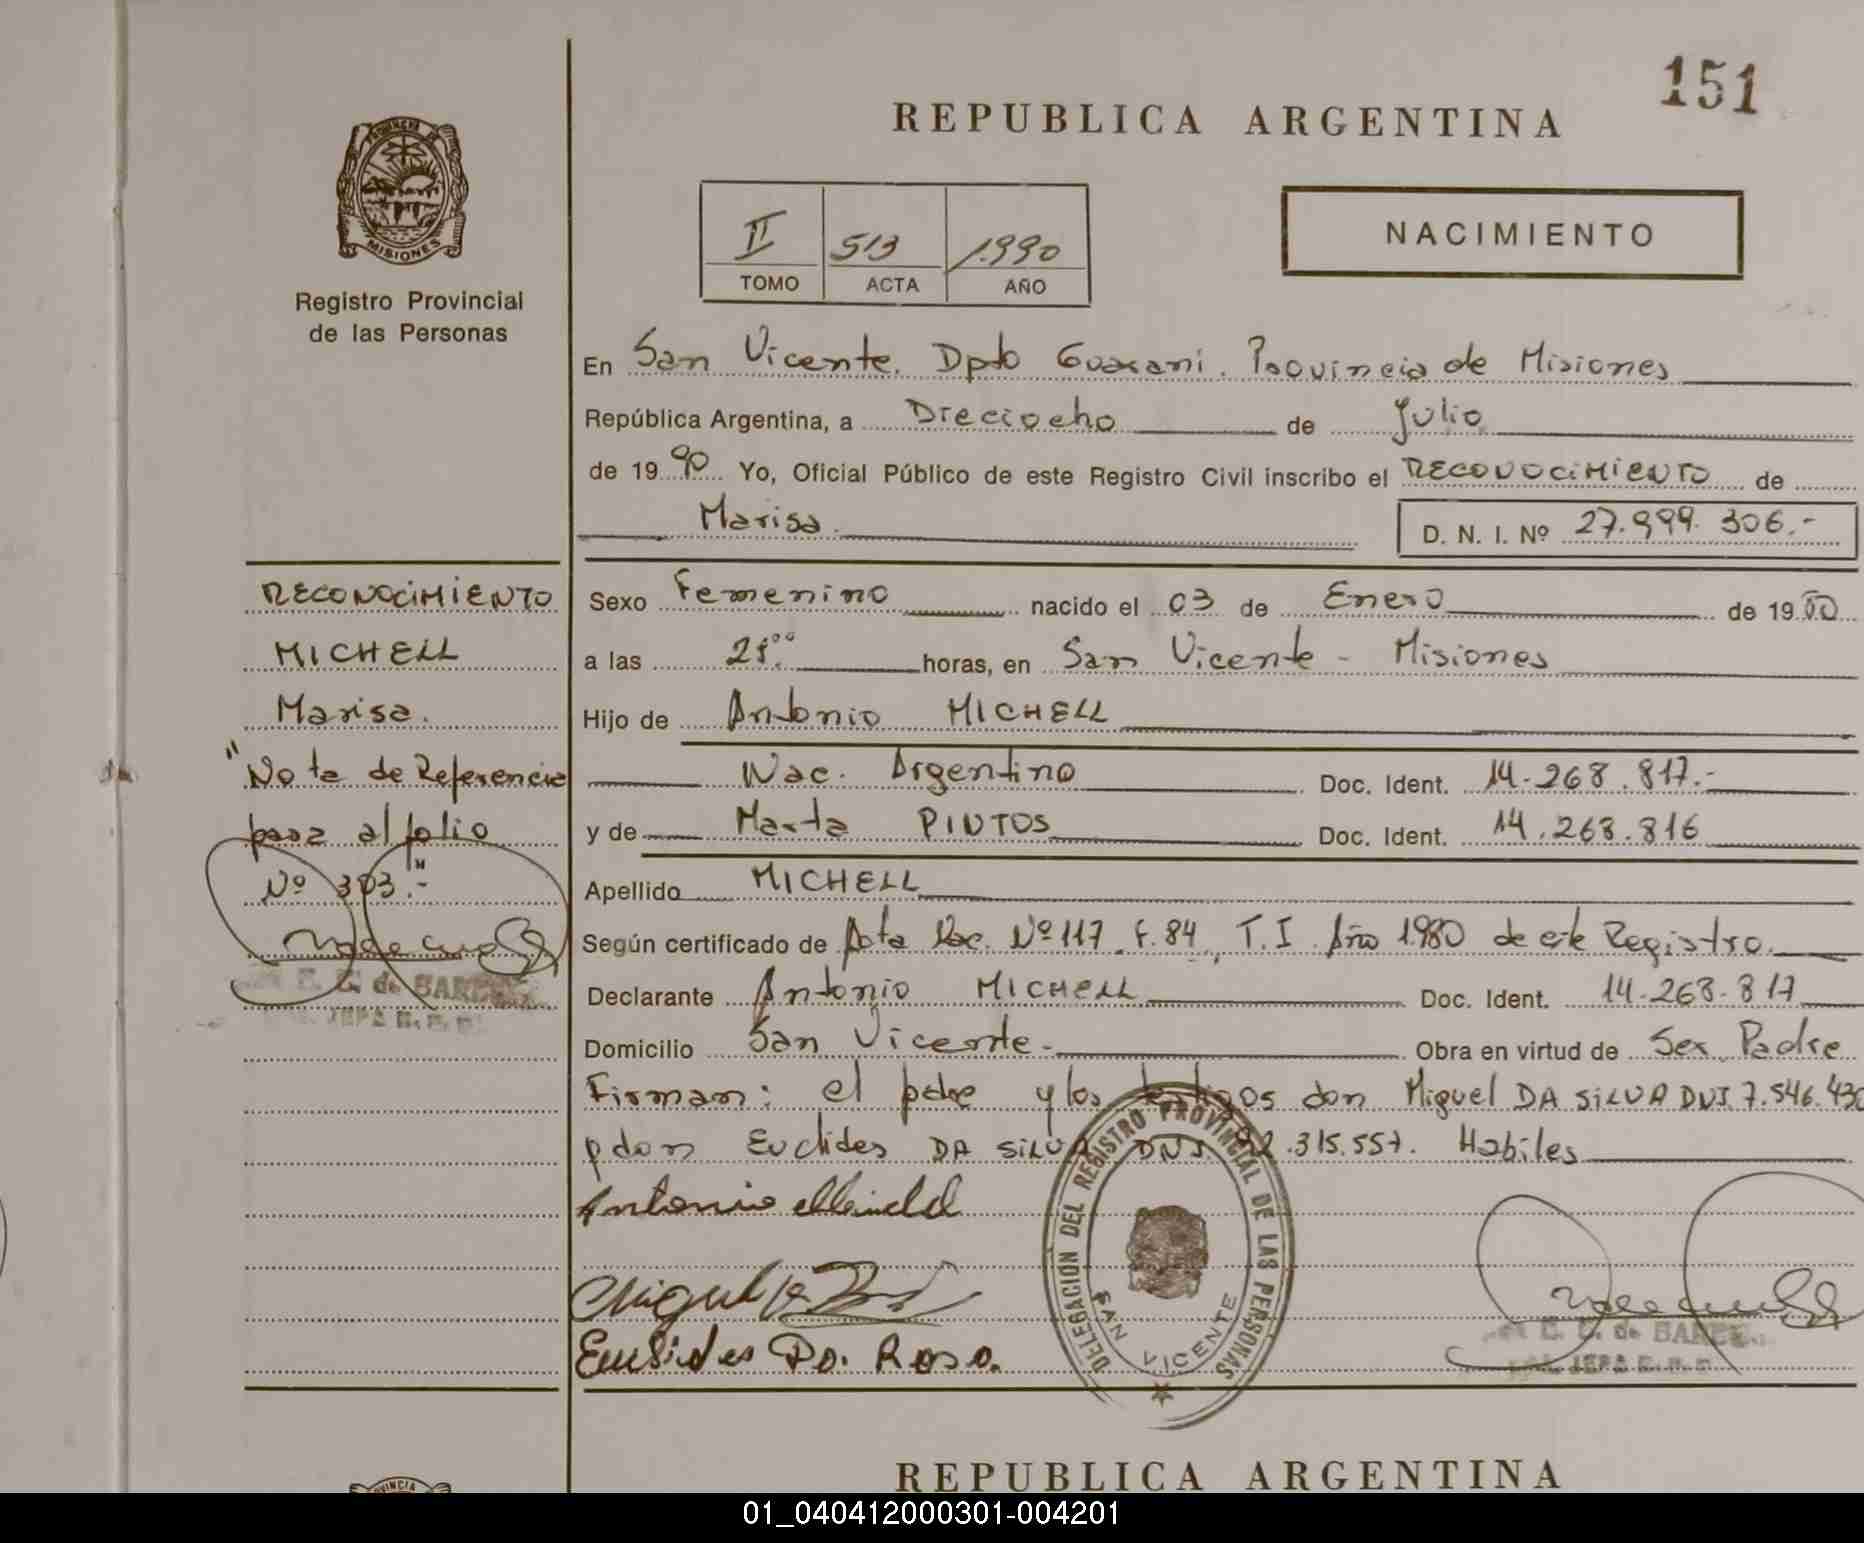 151
REPUBLICA ARGENTINA
PROVINCIA DE
MISIONES
Registro Provincial
de las Personas
II 513 1.990
TOMO ACTA AÑO
NACIMIENTO
En San Vicente. Dpto Guarani. Provincia de Misiones
República Argentina, a Dieciocho de Julio
de 1990 Yo, Oficial Público de este Registro Civil inscribo el RECONOCIMIENTO de
Marisa. D. N. I. Nº 27.999.306.-
Sexo Femenino nacido el 03 de Enero de 1980
a las horas, en San Vicente - Misiones
Hijo de Antonio MICHELL
Nac. Argentino Doc. Ident. 14.268.817.-
y de Marta PINTOS Doc. Ident. 14.268.816
Apellido MICHELL
Según certificado de Acta Nac. Nº 117 F. 84, T. I Año 1.980 de este Registro.
Declarante Antonio MICHELL Doc. Ident. 14.268.817
Domicilio San Vicente.- Obra en virtud de Ser Padre
Firman: el padre y los testigos don Miguel DA SILVA DNI. 7.546.430
y don Euclides DA SILVA DNI 92.315.557. Habiles
Antonio Michell
Euclides Da. Rosa.
RECONOCIMIENTO
MICHELL
Marisa.
"Nota de Referencia
pasa al folio
Nº 303.-"
E. E. de
DELEGACION DEL REGISTRO PROVINCIAL DE LAS PERSONAS
SAN VICENTE
E. E. de
REPUBLICA ARGENTINA
01_040412000301-004201